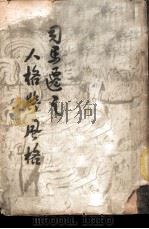 司馬遷之
人格與風格